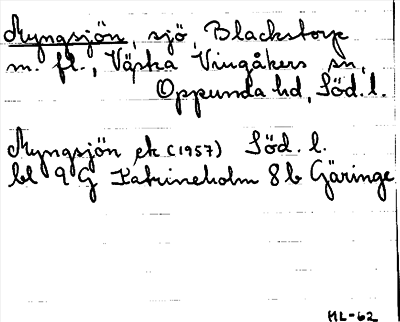 Myngsjön, sjö, Blackstorp
m. fl., Västra Vingåkers sn,
Oppunda hd, Söd. l.
Myngsjön ek (1957) Söd. l.
bl 9 G Katrineholm 8 b Gäringe
HL-62